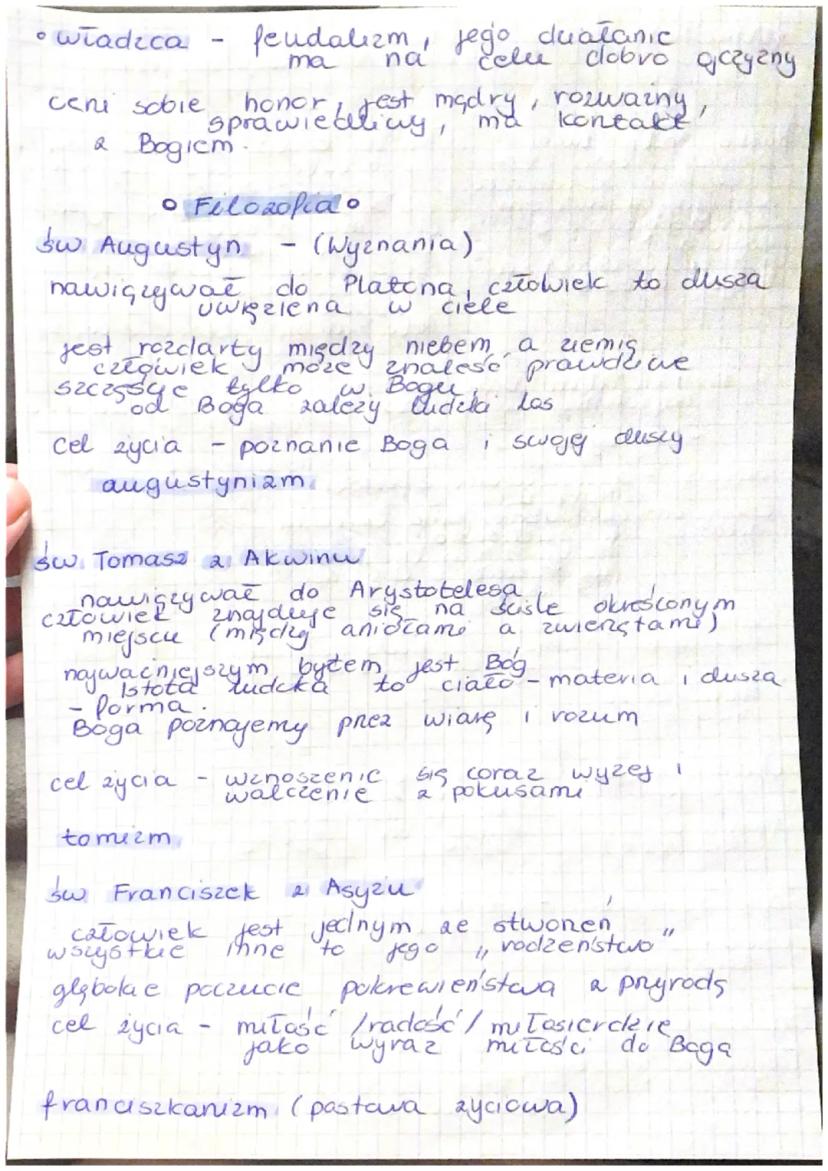 • władzca - feudalizm, jego działanie
ma na celu dobro ojczyzny
ceni sobie honor, jest mądry, rozważny,
sprawiedliwy, ma kontakt
z Bogiem.
• Filozofia •
św Augustyn - (Wyznania)
nawiązywał do Platona, człowiek to dusza
uwięziona w ciele
jest rozdarty między niebem, a ziemią
człowiek może znaleść prawdziwe
szczęście tylko w Bogu
od Boga zależy ludzki los
cel życia - poznanie Boga i swojej duszy
augustynizm
św. Tomasz z Akwinu
nawiązywał do Arystotelesa,
człowiek znajduje się na ściśle określonym
miejscu (między aniołami a zwierzętami)
najważniejszym bytem jest Bóg
Istota ludzka to ciało - materia i dusza
- forma.
Boga poznajemy przez wiarę i rozum
cel życia - wznoszenie się coraz wyżej i
walczenie z pokusami
tomizm
św Franciszek z Asyżu
człowiek jest jednym ze stworzeń,
wszystkie inne to jego „rodzeństwo"
głębokie poczucie pokrewieństwa z przyrodą
cel życia - miłość/radość/miłosierdzie
jako wyraz miłości do Boga
franciszkanizm (postawa życiowa)